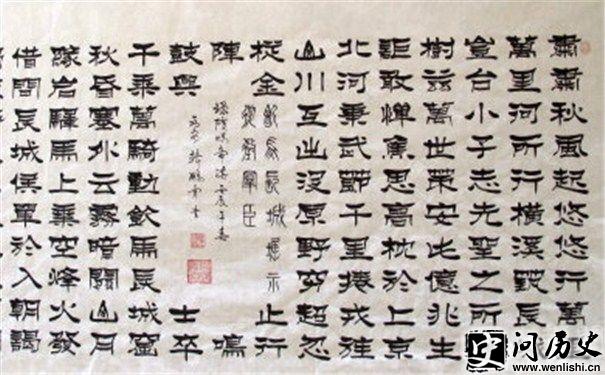 肅肅秋風起悠悠行萬
萬里河所行橫漠長
豈台小子志先聖之所
樹茲萬世策安此億兆生
詎敢憚焦思高枕於上京
北河秉武節千里捲戎旌
山川互出沒原野窮超忽
摐金止行
陣鳴
鼓與士卒
千乘萬騎動飲馬長城窟
秋昏塞外雲霧暗關山月
岩驛馬上乘空烽火發
借問長城侯單於入朝謁
從征羣臣
问历史
www.wenlishi.cn